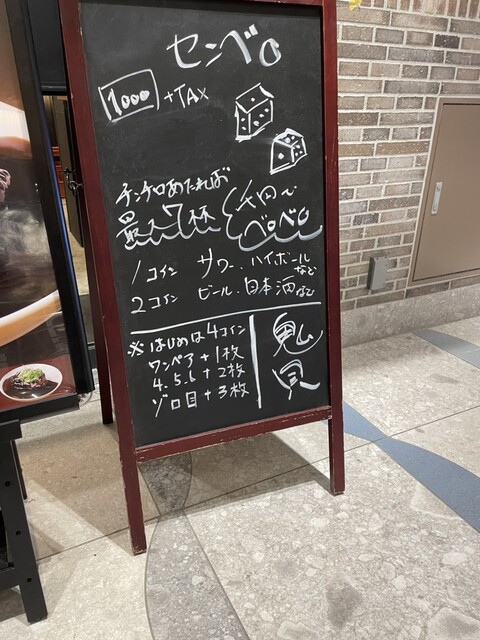 センベロ
1000 +TAX
チンチロあたれば
最大7杯
千円で
ベロベロ
1コイン サワー・ハイボールなど
2コイン ビール・日本酒など
※はじめは4コイン
ワンペア+1枚
4.5.6+2枚
ゾロ目+3枚